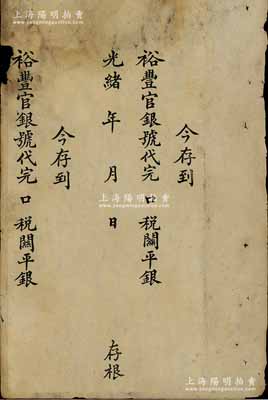 上海陽明拍賣
www.yangmingauction.com
今存到
裕豐官銀號代完口稅關平銀
光緒 年 月 日
存根
今存到
裕豐官銀號代完口稅關平銀
上海陽明拍賣
www.yangmingauction.com
上海陽明拍賣
www.yangmingauction.com